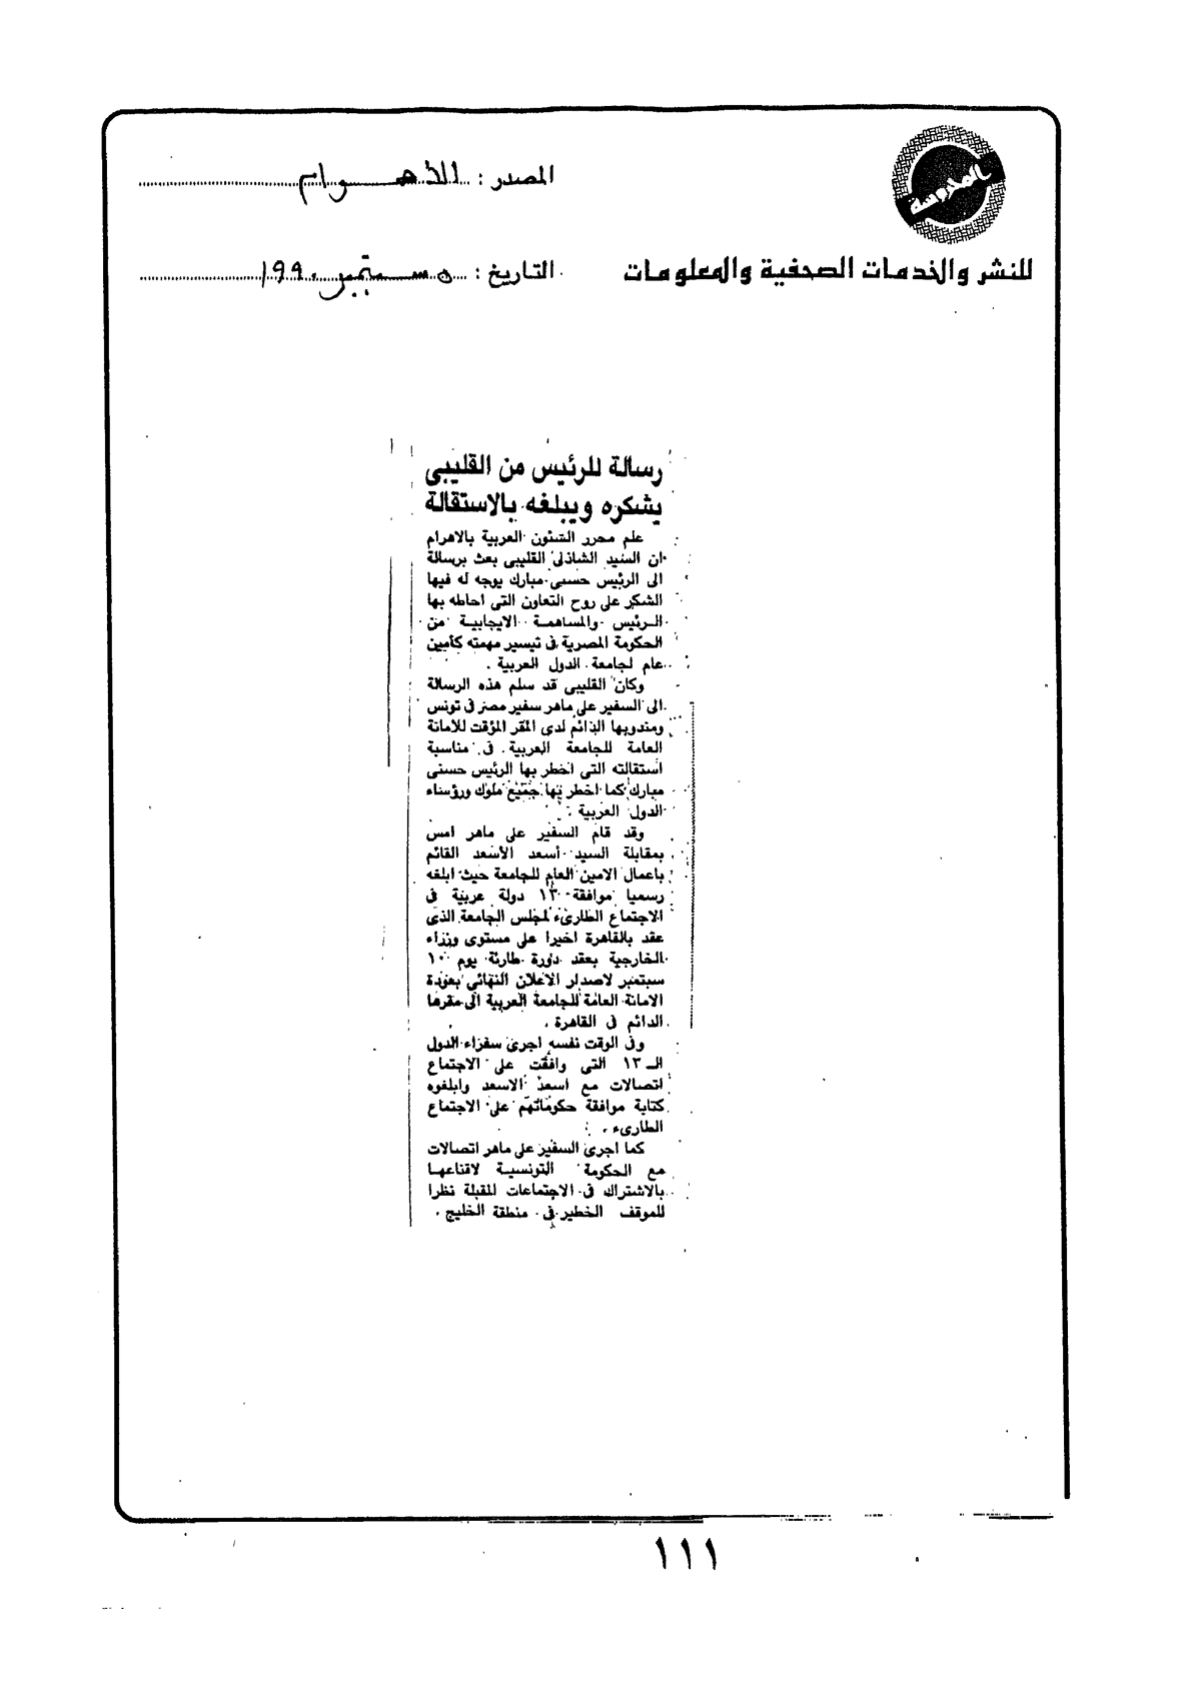 المصدر : الأهرام
للنشر والخدمات الصحفية والمعلومات
التاريخ : ٥ سبتمبر ١٩٩٠
رسالة للرئيس من القليبى
يشكره ويبلغه بالاستقالة
علم محرر الشئون العربية بالاهرام
ان السيد الشاذلى القليبى بعث برسالة
الى الرئيس حسنى مبارك يوجه له فيها
الشكر على روح التعاون التى احاطه بها
الرئيس والمساهمة الايجابية من
الحكومة المصرية فى تيسير مهمته كأمين
عام لجامعة الدول العربية .
وكان القليبى قد سلم هذه الرسالة
الى السفير على ماهر سفير مصر فى تونس
ومندوبها الدائم لدى المقر المؤقت للأمانة
العامة للجامعة العربية . فى مناسبة
استقالته التى اخطر بها الرئيس حسنى
مبارك كما اخطر بها جميع ملوك ورؤساء
الدول العربية .
وقد قام السفير على ماهر امس
بمقابلة السيد أسعد الأسعد القائم
باعمال الامين العام للجامعة حيث ابلغه
رسميا موافقة ١٣ دولة عربية فى
الاجتماع الطارىء لمجلس الجامعة الذى
عقد بالقاهرة اخيرا على مستوى وزراء
الخارجية بعقد دورة طارئة يوم ١٠
سبتمبر لاصدار الاعلان النهائى بعودة
الامانة العامة للجامعة العربية الى مقرها
الدائم فى القاهرة .
وفى الوقت نفسه اجرى سفراء الدول
الـ ١٣ التى وافقت على الاجتماع
اتصالات مع اسعد الاسعد وابلغوه
كتابة موافقة حكوماتهم على الاجتماع
الطارىء .
كما اجرى السفير على ماهر اتصالات
مع الحكومة التونسية لاقناعها
بالاشتراك فى الاجتماعات المقبلة نظرا
للموقف الخطير فى منطقة الخليج .
١١١